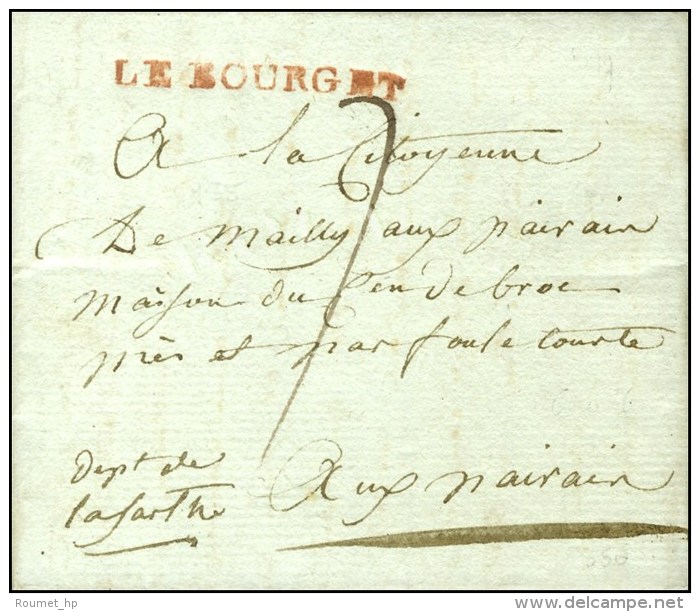 LE BOURGET
A la Citoyenne
De mailly aux pairain
maison du Cen De broc
près et par foule tourte
7
dept de
la sarthe
Aux pairain
550
Roumet_hp
delcampe.net